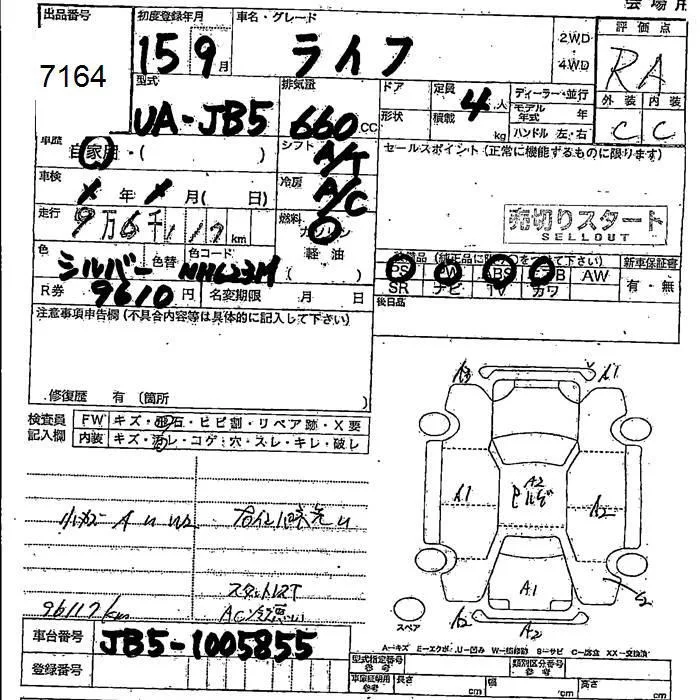 会場用
出品番号
初度登録年月
車名・グレード
評価点
7164
15 9月
ライフ
2WD
4WD
RA
型式
排気量
ドア
定員
ディーラー・並行
外装 内装
UA-JB5
660 CC
形状
積載
4人
kg
モデル年式 年
ハンドル 左・右
C C
車歴
自家用・( )
シフト
A/T
セールスポイント(正常に機能するものに限ります)
車検
年 月( 日)
冷房
A/C
売切りスタート
SELLOUT
走行
9万6千117km
燃料
ガソリン
軽油
( )
色
シルバー
色替
色コード
NH623M
PS PW ABS エアB AW
SR ナビ TV カワ
新車保証書
有・無
R券
9610円
名変期限 月 日
後日品
注意事項申告欄(不具合内容等は具体的に記入して下さい)
修復歴 有(箇所 )
検査員
記入欄
FW キズ・飛石・ヒビ割・リペア跡・X要
内装 キズ・汚レ・コゲ・穴・スレ・キレ・破レ
A3 A1
A2
A1 A2
A1
A2 A2
A U W2
スタットレスT
96117km
スペア
A―キズ E―エクボ U―凹み W―補修跡 S―サビ C―腐食 XX―交換済
車台番号
JB5-1005855
型式指定番号
参考
類別区分番号
参考
登録番号
車庫証明用
参考
長さ cm 幅 cm 高さ cm